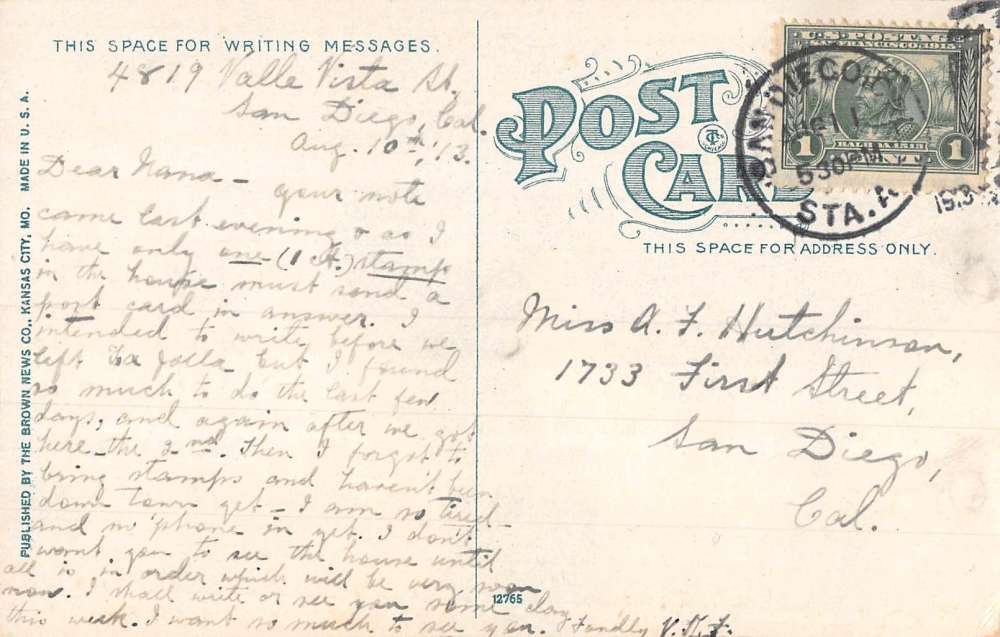 THIS SPACE FOR WRITING MESSAGES.
4819 Valle Vista St.
San Diego, Cal.
Aug. 10th, '13.
Dear Nana –
your note
came last evening & as I
have only one (1 ct.) stamp
in the house must send a
post card in answer. I
intended to write before we
left La Jolla but I found
so much to do the last few
days, and again after we got
here the 2nd. Then I forgot to
bring stamps and haven't been
down town yet – I am so tired –
and no 'phone in yet. I don't
want you to see the house until
all is in order which will be very soon
now. I shall write or see you some day
this week. I want so much to see you. Fondly V.
PUBLISHED BY THE BROWN NEWS CO., KANSAS CITY, MO. MADE IN U. S. A.
POST CARD
THIS SPACE FOR ADDRESS ONLY.
U.S. POSTAGE
1 1
SAN DIEGO
5 30 PM
STA. A
193
Miss A. F. Hutchinson,
1733 First Street,
San Diego,
Cal.
12765